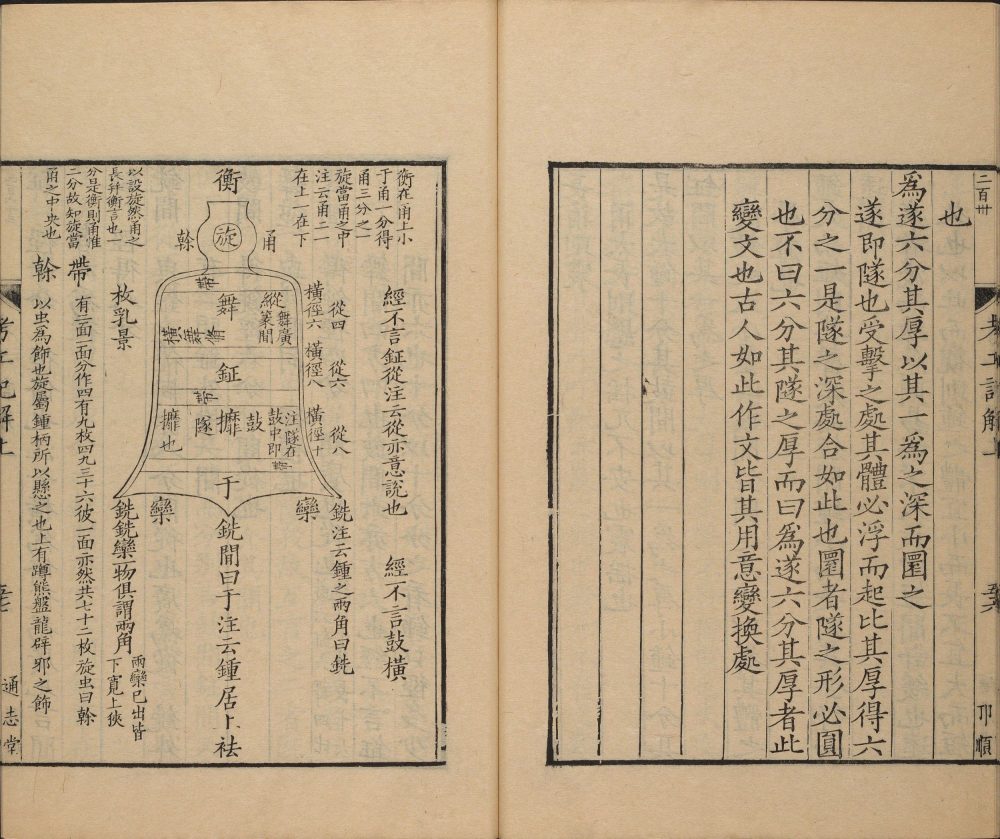 也
為遂六分其厚以其一為之深而圜之
遂即隧也受擊之處其體必浮而起比其厚得六
分之一是隧之深處合如此也圜者隧之形必圓
也不曰六分其隧之厚而曰為遂六分其厚者此
變文也古人如此作文皆其用意變換處
二百卅
卯順
衡在甬上小
于甬一分得
甬三分之一
旋當甬之中
注云甬二
在上一在下
經不言鉦從注云從亦意說也
經不言鼓橫
從四
橫徑六
從六
橫徑八
從八
橫徑十
銑注云鍾之兩角曰銑
欒
衡
甬
旋
幹
舞廣
縱
篆間
舞
鉦
注隧在
鼓中即
鼓
攠
隧
攠也
于
銑間曰于注云鍾居上袪
欒
枚乳景
銑銑欒一物俱謂兩角
兩欒已出皆
下寬上狹
以設旋然甬之
長幷衡言也一
分是衡則甬惟
二分故知旋當
甬之中央也
帶
有二面一面分作四有九枚四九三十六彼一面亦然共七十二枚旋虫曰幹
幹
以虫為飾也旋屬鍾柄所以懸之也上有蹲熊盤龍辟邪之飾
考工記解上
通志堂